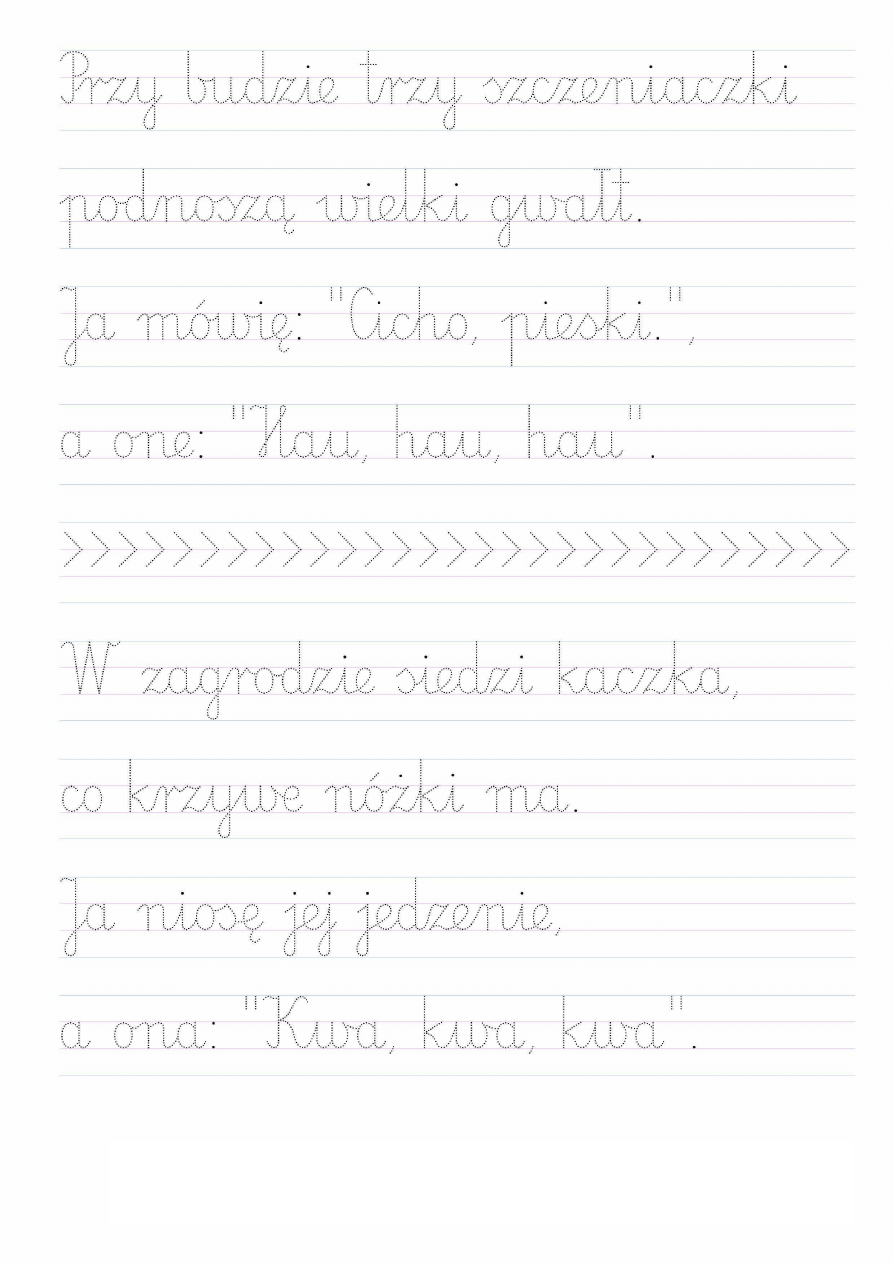 Przy budzie trzy szczeniaczki
podnoszą wielki gwałt.
Ja mówię: "Cicho, pieski." ,
a one: "Hau, hau, hau" .
>>>>>>>>>>>>>>>>>>>>>>>>>>>>>
W zagrodzie siedzi kaczka,
co krzywe nóżki ma.
Ja niosę jej jedzenie,
a ona: "Kwa, kwa, kwa" .